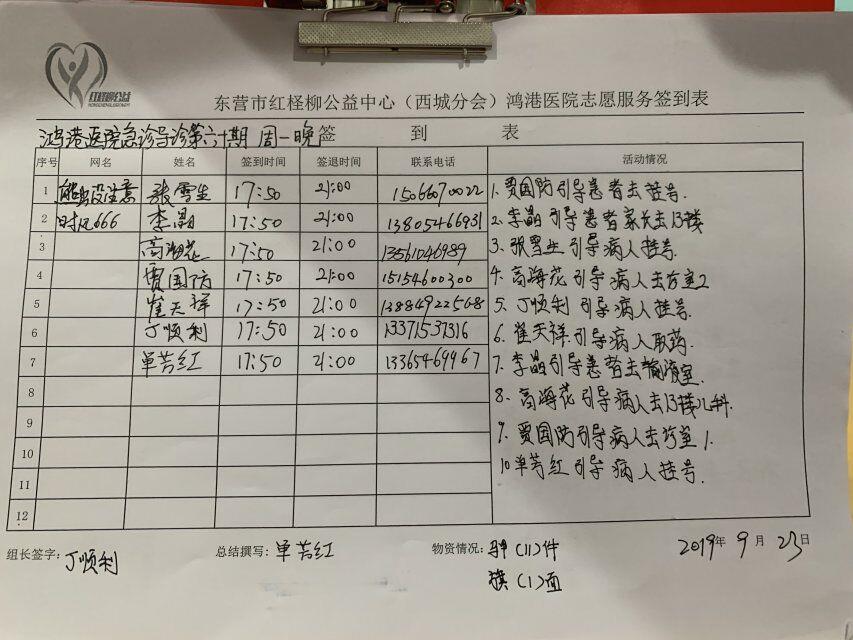 红柽柳公益
东营市红柽柳公益中心（西城分会）鸿港医院志愿服务签到表
鸿港医院急诊导诊第六十期 周一晚 签 到 表
序号 网名 姓名 签到时间 签退时间 联系电话 活动情况
1 熊出没注意 张雪生 17:50 21:00 15066670022
2 时风666 李晶 17:50 21:00 13805466931
3 高海花 17:50 21:00 13561046989
4 贾国防 17:50 21:00 15154600300
5 崔天祥 17:50 21:00 13884922568
6 丁顺利 17:50 21:00 13371537316
7 单芳红 17:50 21:00 13365469967
8
9
10
11
12
1. 贾国防引导患者去挂号.
2. 李晶引导患者家长去13楼
3. 张雪生引导病人挂号.
4. 高海花引导病人去诊室2
5. 丁顺利引导病人挂号.
6. 崔天祥引导病人取药.
7. 李晶引导患者去输液室.
8. 高海花引导病人去13楼儿科.
9. 贾国防引导病人去诊室1.
10 单芳红引导病人挂号.
组长签字: 丁顺利 总结撰写: 单芳红 物资情况: (11)件 2019年 9月 23日
旗(1)面